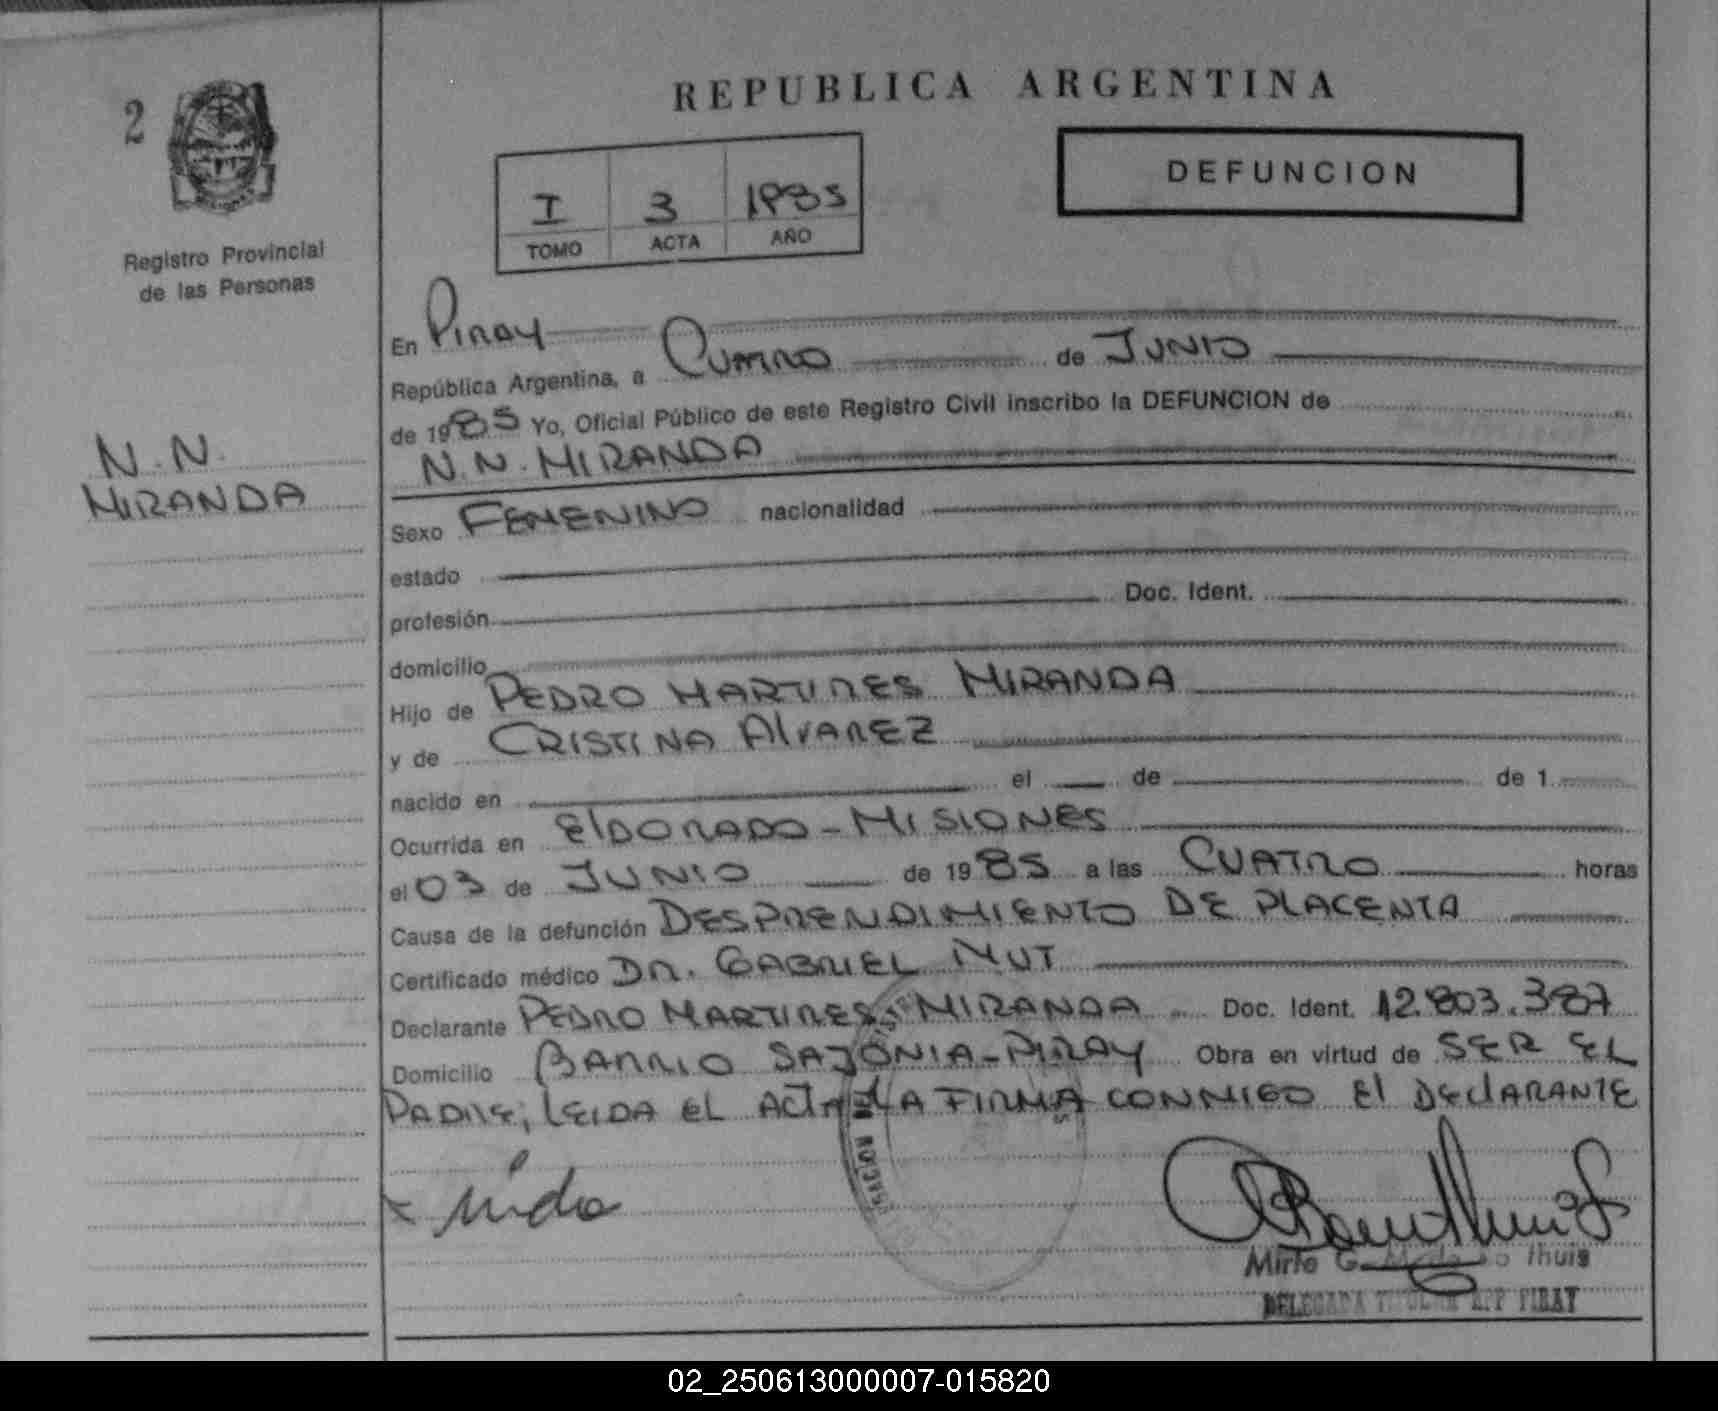 REPUBLICA ARGENTINA
2
I 3 1985
TOMO ACTA AÑO
DEFUNCION
Registro Provincial
de las Personas
N.N.
MIRANDA
En PIRAY
República Argentina, a CUATRO de JUNIO
de 1985 Yo, Oficial Público de este Registro Civil inscribo la DEFUNCION de
N.N. MIRANDA
Sexo FEMENINO nacionalidad
estado
profesión Doc. Ident.
domicilio
Hijo de PEDRO MARTIRES MIRANDA
y de CRISTINA AlVAREZ
nacido en el de de 1
Ocurrida en ElDORADO - MISIONES
el 03 de JUNIO de 1985 a las CUATRO horas
Causa de la defunción DESPRENDIMIENTO DE PLACENTA
Certificado médico DR. GABRIEL MUT
Declarante PEDRO MARTIRES MIRANDA Doc. Ident. 12.803.387
Domicilio BARRIO SAJONIA - PIRAY Obra en virtud de SER EL
PADRE, LEIDA EL ACTA LA FIRMA CONMIGO El DEClARANTE
Mirta G.
DELEGADA PIRAY
02_250613000007-015820